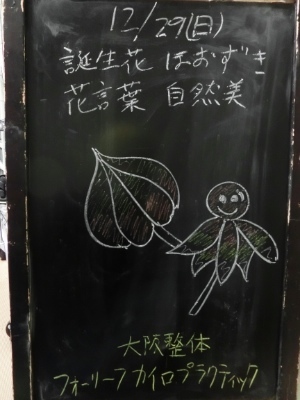 12/29(日)
誕生花 ほおずき
花言葉 自然美
大阪整体
フォーリーフカイロプラクティック